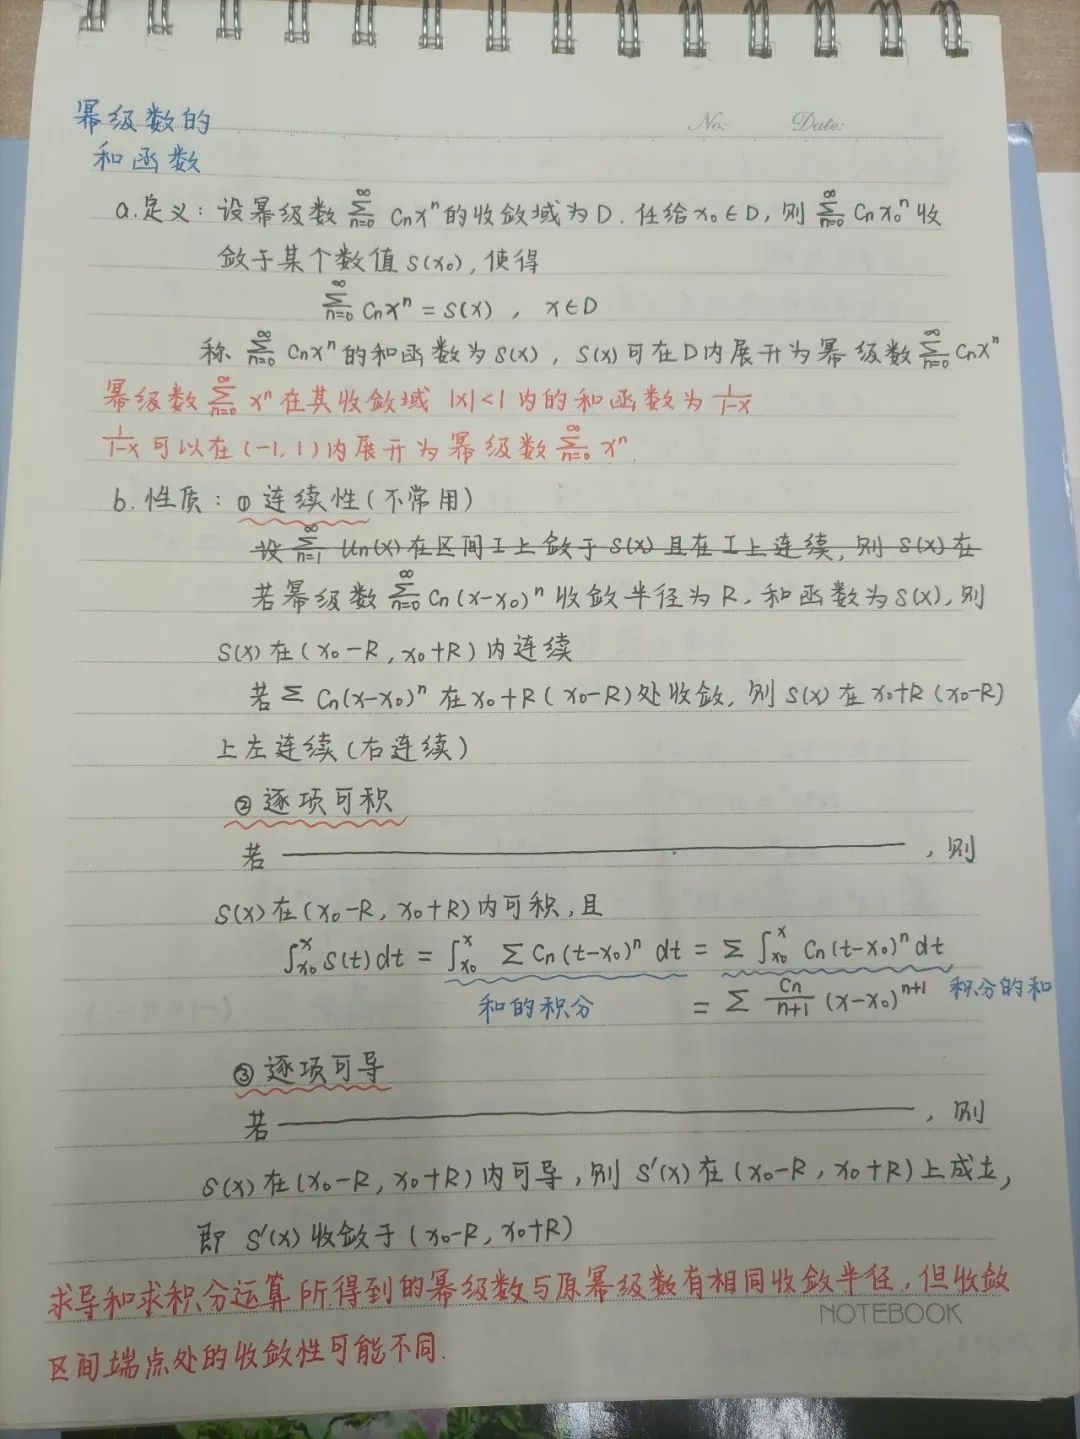 幂级数的
No: Date:
和函数
a.定义：设幂级数 ∑_{n=0}^{∞} Cnxⁿ的收敛域为D.任给x₀∈D,则 ∑_{n=0}^{∞} Cnx₀ⁿ收
敛于某个数值S(x₀),使得
∑_{n=0}^{∞} Cnxⁿ = S(x) , x∈D
称 ∑_{n=0}^{∞} Cnxⁿ的和函数为S(x), S(x)可在D内展开为幂级数 ∑_{n=0}^{∞} Cnxⁿ
幂级数 ∑_{n=0}^{∞} xⁿ在其收敛域 |x|<1内的和函数为 1/(1-x)
1/(1-x) 可以在(-1,1)内展开为幂级数 ∑_{n=0}^{∞} xⁿ.
b.性质：① 连续性(不常用)
设 ∑_{n=1}^{∞} Un(x)在区间I上敛于S(x)且在I上连续,则 S(x)在
若幂级数 ∑_{n=0}^{∞} Cn(x-x₀)ⁿ收敛半径为R,和函数为S(x),则
S(x)在(x₀-R,x₀+R)内连续
若∑ Cn(x-x₀)ⁿ在x₀+R(x₀-R)处收敛,则S(x)在x₀+R(x₀-R)
上左连续(右连续)
② 逐项可积
若 ———— ,则
S(x)在(x₀-R,x₀+R)内可积,且
∫_{x₀}^{x} S(t)dt = ∫_{x₀}^{x} ∑ Cn(t-x₀)ⁿ dt = ∑ ∫_{x₀}^{x} Cn(t-x₀)ⁿdt
和的积分 = ∑ Cn/(n+1) (x-x₀)ⁿ⁺¹ 积分的和
③ 逐项可导
若 ———— ,则
S(x)在(x₀-R,x₀+R)内可导,则 S'(x)在(x₀-R,x₀+R)上成立,
即 S'(x)收敛于(x₀-R,x₀+R)
求导和求积分运算所得到的幂级数与原幂级数有相同收敛半径,但收敛
NOTEBOOK
区间端点处的收敛性可能不同.